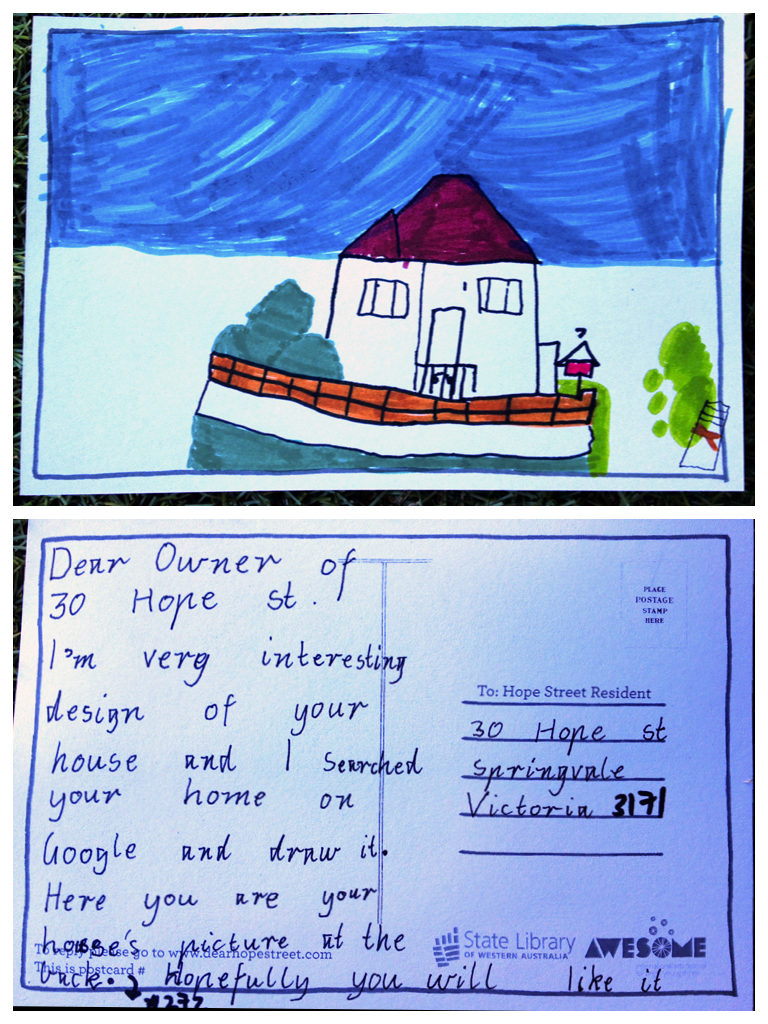 Dear Owner of
30 Hope st.
I'm very interesting
design of your
house and I searched
your home on
Google and draw it.
Here you are your
house's picture at the
back. Hopefully you will like it
To reply please go to www.dearhopestreet.com
This is postcard #
#272
PLACE
POSTAGE
STAMP
HERE
To: Hope Street Resident
30 Hope st
Springvale
Victoria 3171
State Library
OF WESTERN AUSTRALIA
AWESOME